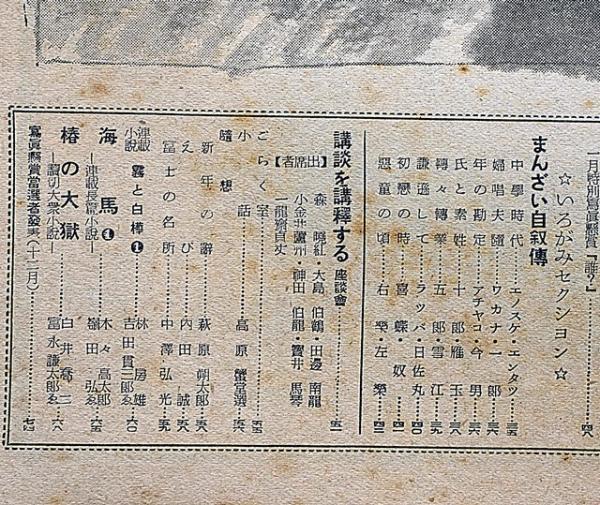 一月特別寫眞懸賞『誰?』……四八
☆いろがみセクション☆
まんざい自叙傳
中學時代……エノスケ・エンタツ……三五
婦唱夫隨……ワカナ・一郎……三六
年の勘定……アチヤコ・今男……三八
氏と素姓……十郎・雁玉……三八
轉々轉業……五郎・雪江……三九
謙遜して……ラッパ・日佐丸……四〇
初戀の時……喜蝶・奴……四一
惡童の頃……右樂・左樂……四三
講談を講釋する 座談會……五一
【出席者】
森 曉紅・大島 伯鶴・田邊 南龍
小金井蘆州・神田 伯龍・寶井 馬琴
一龍齋貞丈
ごらく室……五五
小話……高原 蟹京選……五六
隨想
新年の辭……萩原 朔太郎……五八
えび……内田 誠……五八
富士の名所……中澤 弘光……五九
連載小説 霧と白樺❶……林 房雄 吉田 貫三郎ゑ……六〇
海馬❶ ―連載長篇小説―……木々 高太郎 嶺田 弘ゑ……六五
椿の大獄 ―讀切大衆小説―……白井 喬二 富永 謙太郎ゑ……六八
寫眞懸賞當選者發表(十二月)……七四